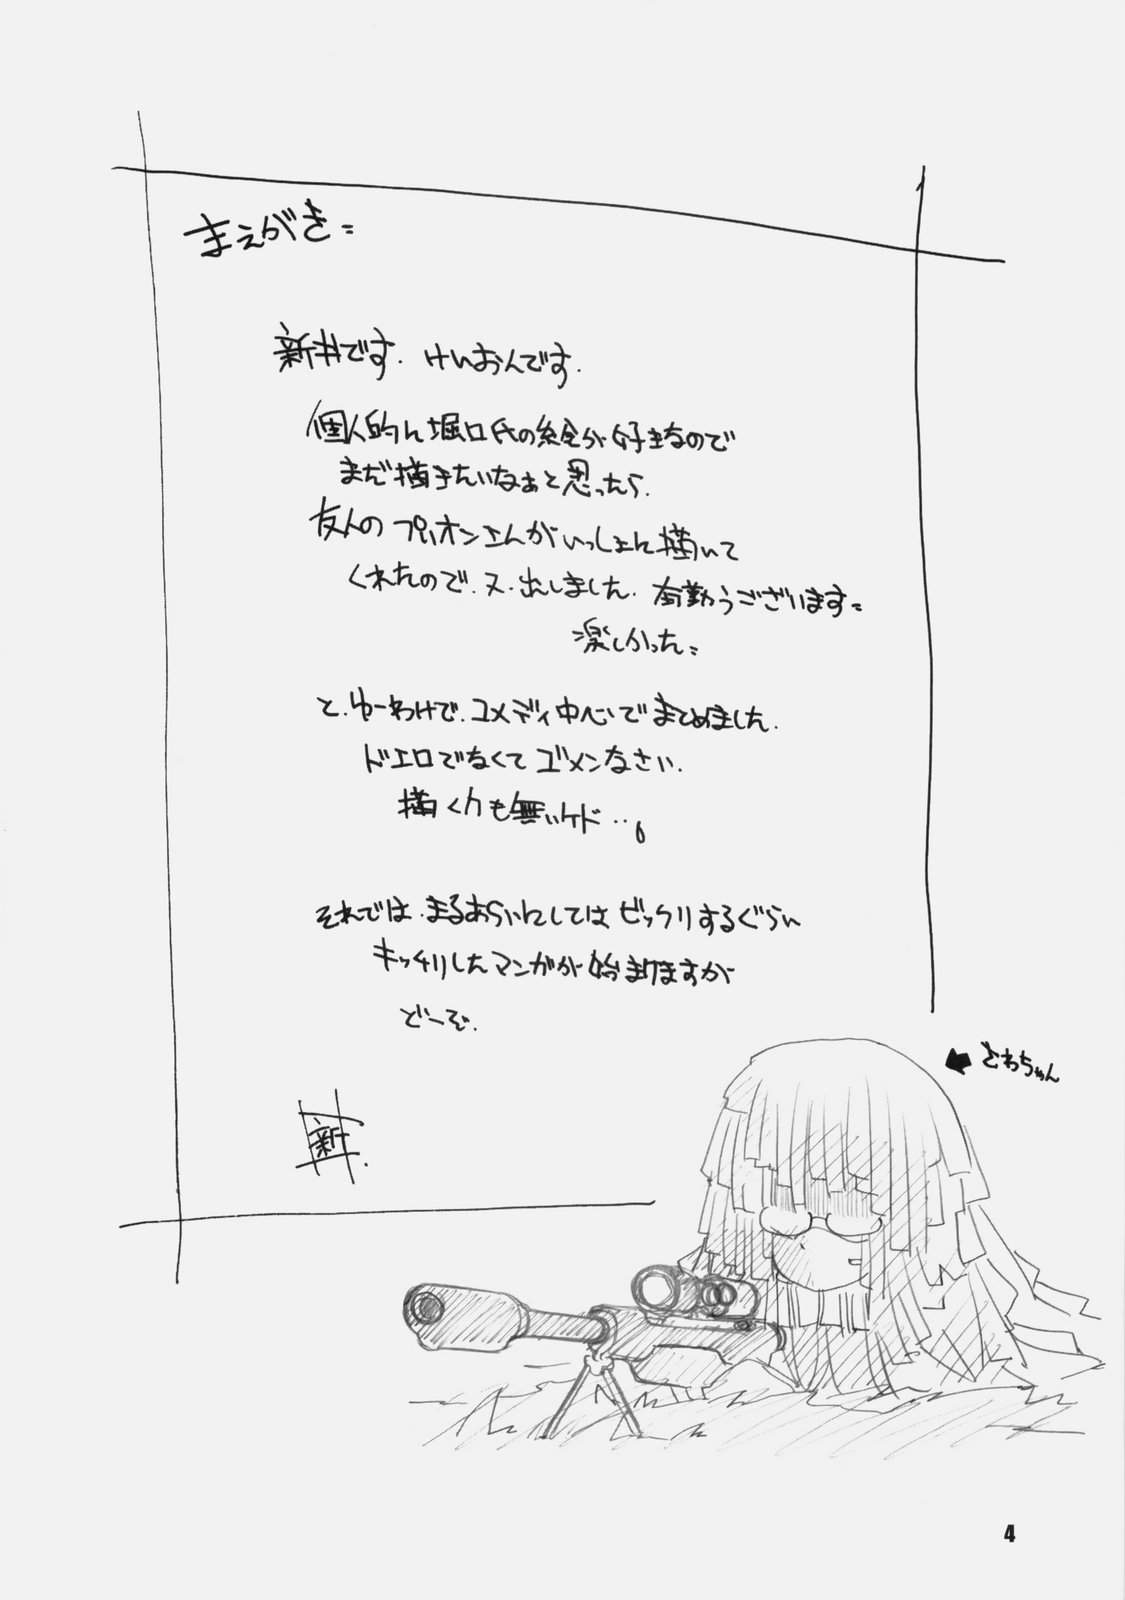 まえがき=
新井です. けいおんです.
個人的に堀口氏の絵が好きなので
まだ描きたいなぁと思ったら.
友人の プリオンさんがいっしょに描いて
くれたので.又.出しました. 有難うございます=
楽しかった=
と.ゆーわけで.コメディ中心でまとめました.
ドエロでなくて ゴメンなさい.
描く力も無いケド・・。
それでは.まるあらいにしては ビックリするぐらい
キッチリしたマンガが始まりますが
どーぞ.
新井.
とわちゃん
4